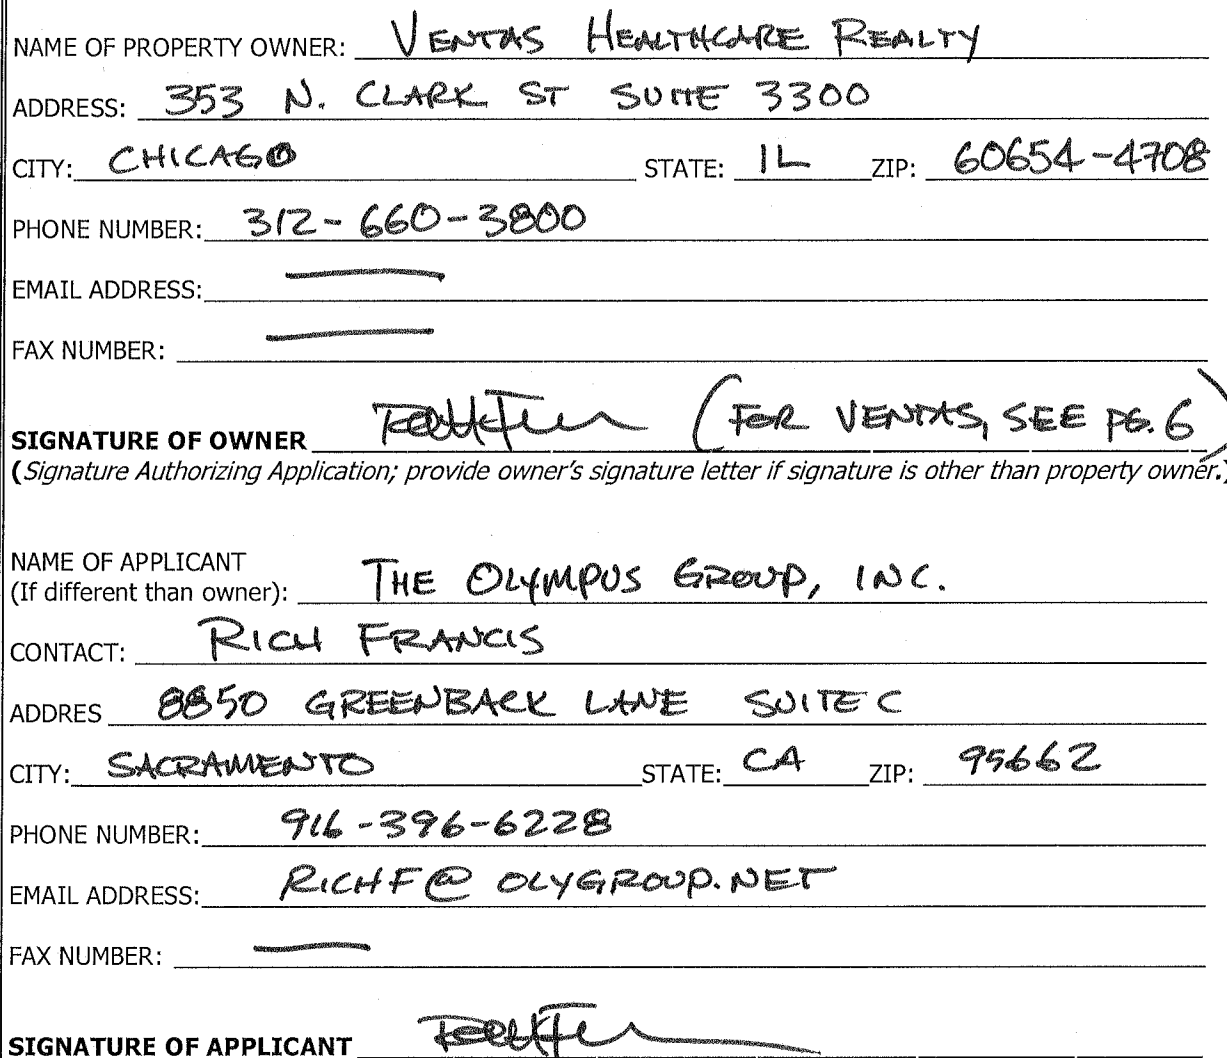 NAME OF PROPERTY OWNER: VENTAS HEALTHCARE REALTY
ADDRESS: 353 N. CLARK ST SUITE 3300
CITY: CHICAGO STATE: IL ZIP: 60654-4708
PHONE NUMBER: 312-660-3800
EMAIL ADDRESS: —
FAX NUMBER: —
SIGNATURE OF OWNER (FOR VENTAS, SEE PG. 6)
(Signature Authorizing Application; provide owner's signature letter if signature is other than property owner.)
NAME OF APPLICANT
(If different than owner): THE OLYMPUS GROUP, INC.
CONTACT: RICH FRANCIS
ADDRES 8850 GREENBACK LANE SUITE C
CITY: SACRAMENTO STATE: CA ZIP: 95662
PHONE NUMBER: 916-396-6228
EMAIL ADDRESS: RICHF@OLYGROUP.NET
FAX NUMBER: —
SIGNATURE OF APPLICANT